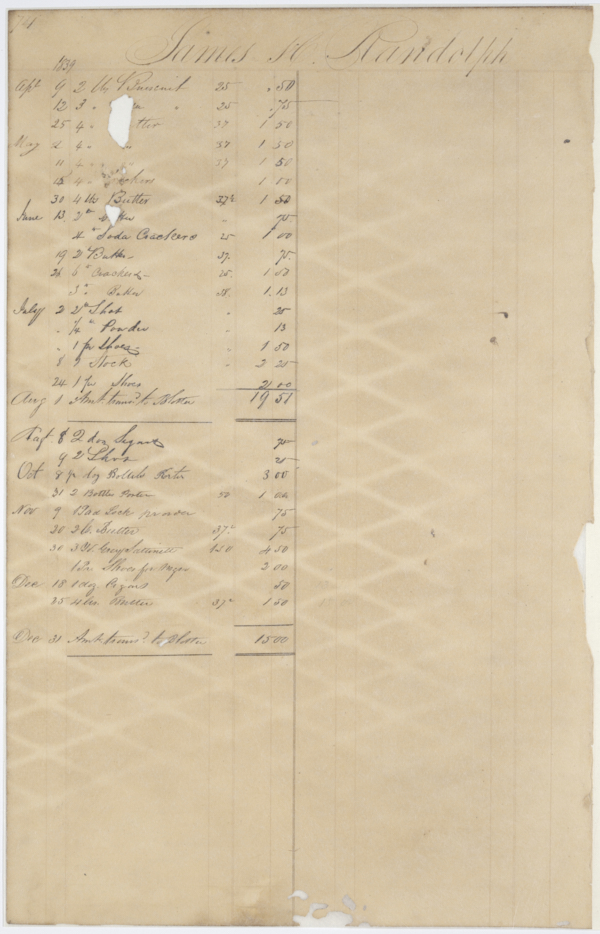 James H. Randolph
1839
Apl 9 2 lbs Biscuit 25 .50
12 3 " " 25 .75
25 4 " 37 1 50
May 4 " 37 1 50
11 4 " 37 1 50
18 4 " 1 00
30 4 lbs Butter 37½ 1 50
June 13 2 " " 75
4 " Soda Crackers 25 1 00
19 2 " Butter 37. 75
26 6 " Crackers 25. 1 50
3 " Butter 38. 1.13
July 2 2 " Shot " 25
" ¼ " Powder " 13
" 1 pr Shoes " 1 50
8 Stock " 2 25
24 1 pr Shoes 2 00
Aug 1 Amt transd to Blotter 19 51
8 2 doz Segars 75
9 2 " Shot 25
Oct 8 doz Bottles Porter 3 00
31 2 Bottles Porter 50 1 00
Nov 9 75
30 2 lb Butter 37½ 75
30 3 Grey Sattinett 150 4 50
1 Pr Shoes for 2 00
Dec 18 1 doz Cigars 50
25 4 lbs Butter 37½ 1 50
Dec 31 Amt transd to Blotter 15 00